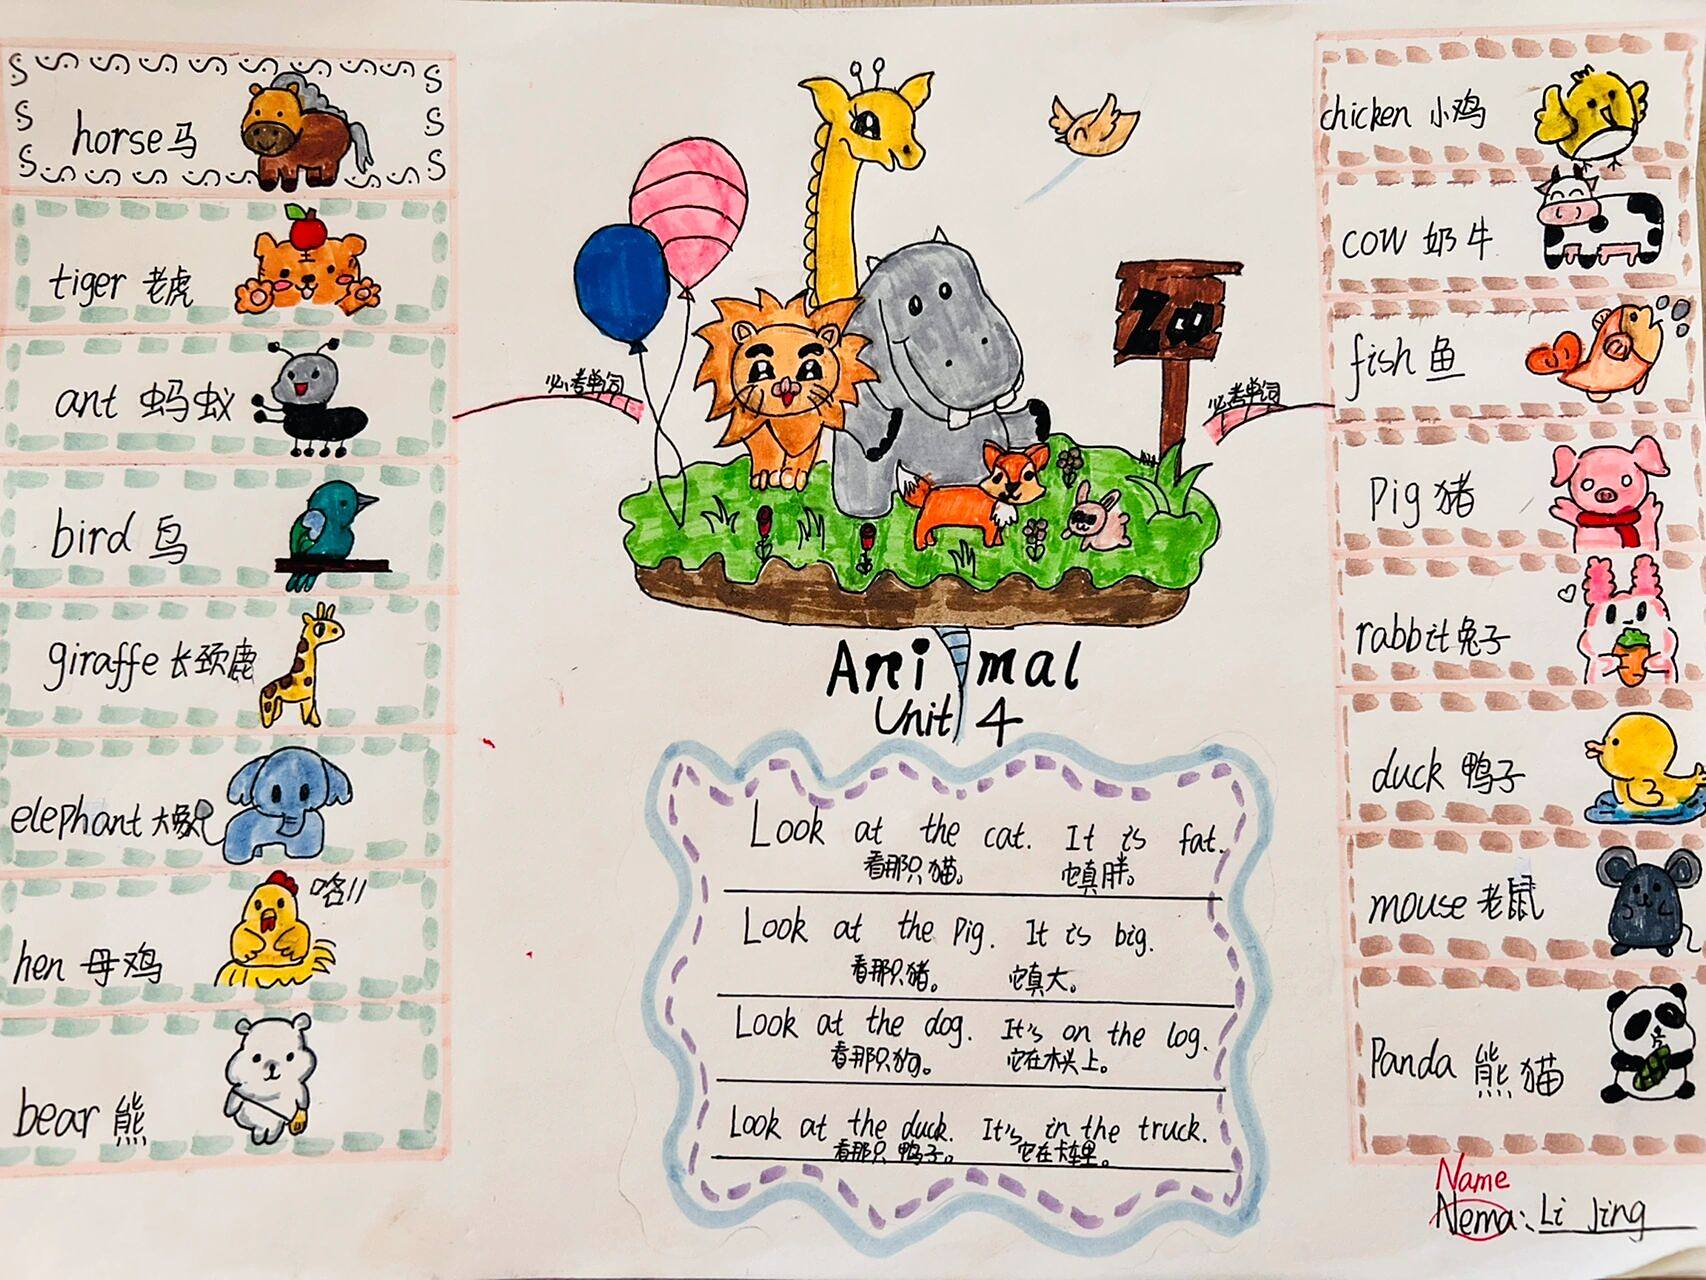 horse 马
tiger 老虎
ant 蚂蚁
bird 鸟
giraffe 长颈鹿
elephant 大象
hen 母鸡
咯!!
bear 熊
必考单词
Zoo
必考单词
Animal
Unit 4
Look at the cat. It is fat.
看那只猫。 它真胖。
Look at the pig. It is big.
看那只猪。 它真大。
Look at the dog. It's on the log.
看那只狗。 它在木头上。
Look at the duck. It's in the truck.
看那只鸭子。 它在卡车里。
chicken 小鸡
cow 奶牛
fish 鱼
Pig 猪
rabbit 兔子
duck 鸭子
mouse 老鼠
Panda 熊猫
Name
Nema: Li Jing